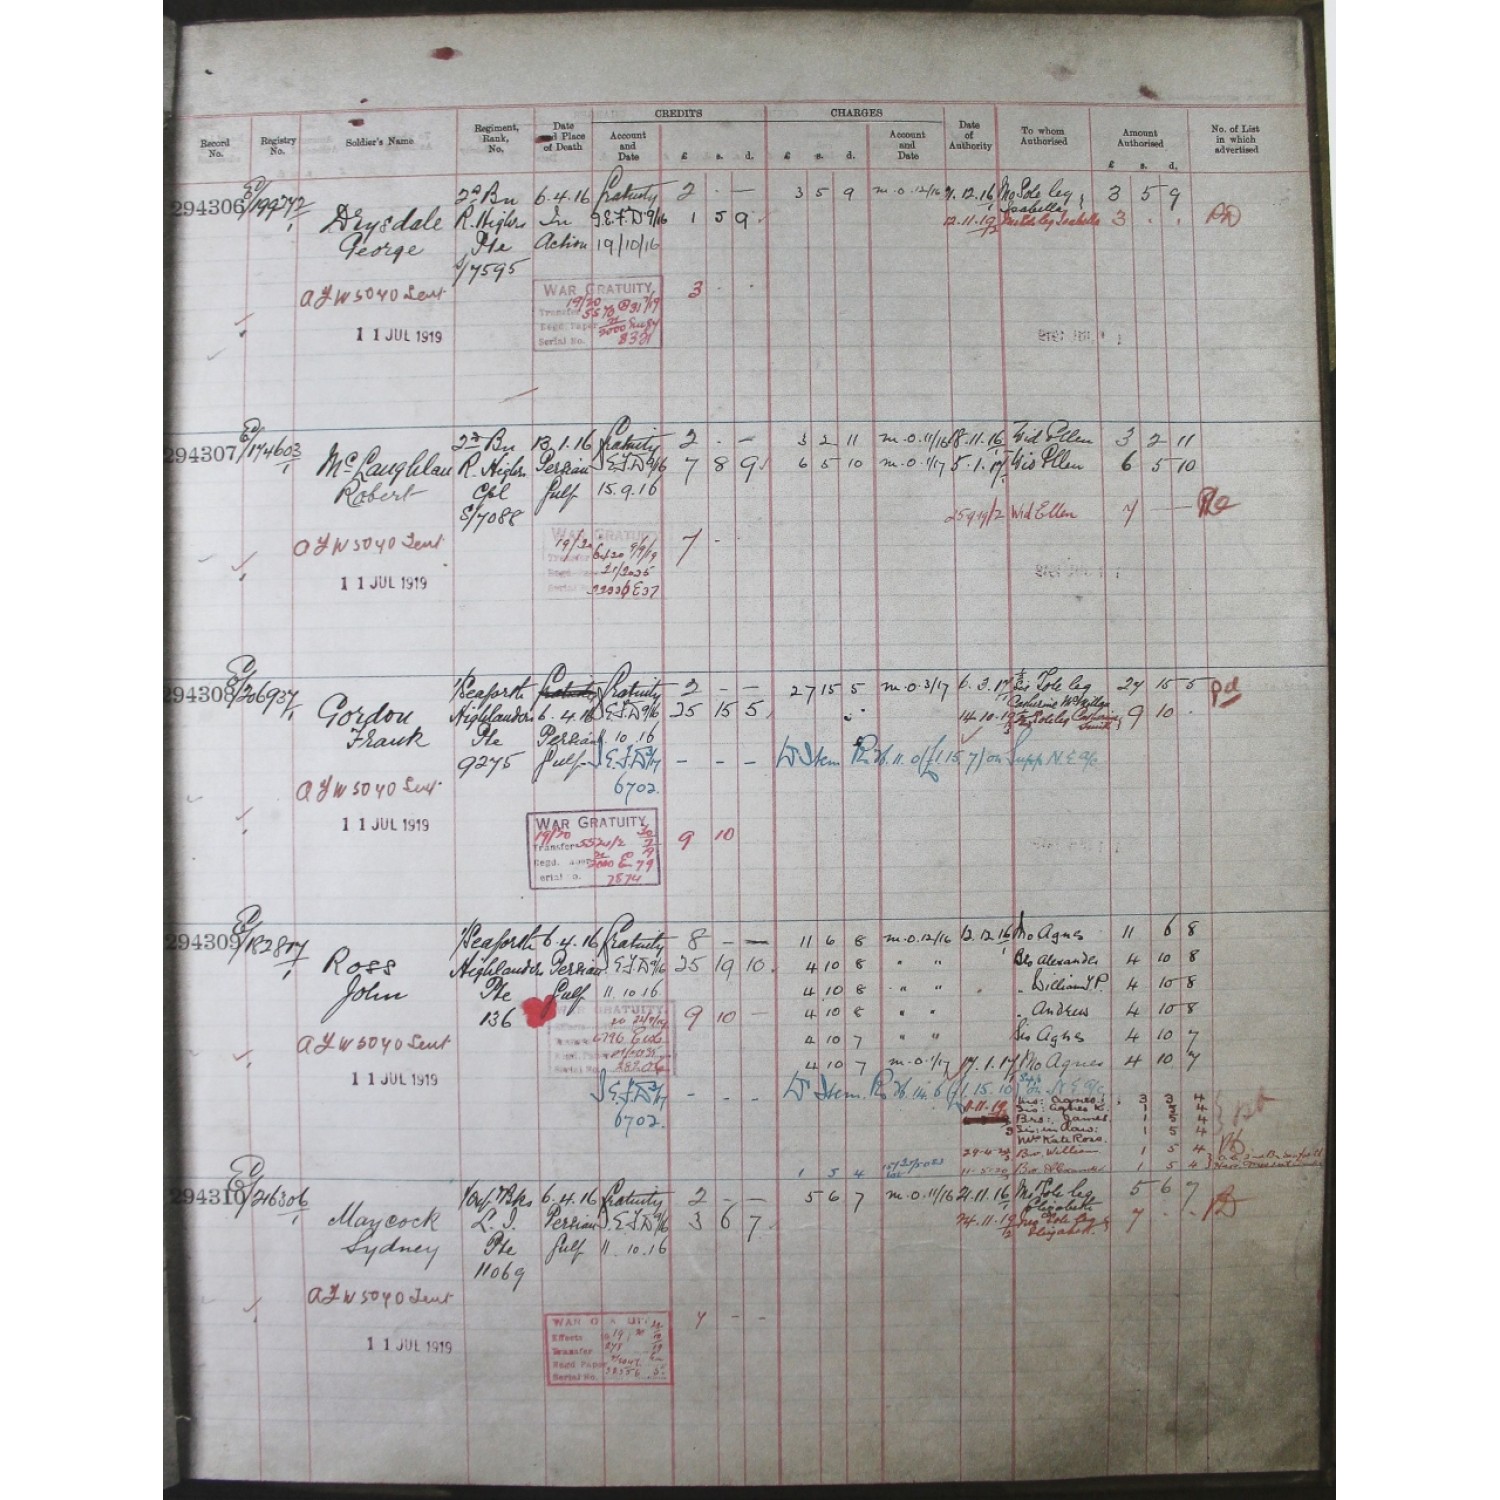 CREDITS CHARGES
Record No. Registry No. Soldier's Name Regiment, Rank, No. Date and Place of Death Account and Date £ s. d. £ s. d. Account and Date Date of Authority To whom Authorised Amount Authorised £ s. d. No. of List in which advertised
294306 E/199272/1 Drysdale 2d Bn 6.4.16 Gratuity 2 - — 3 5 9 m.o.12/16 12.16 Mo Sole leg Isabella 3 5 9
George R. Highrs In 9/16 1 5 9 12.11.19 Isabella 3 . .
Pte Action 19/10/16
S/7595
AFW 5040 Sent WAR GRATUITY 3 - -
19/20
Transfer
Regd. Paper
Serial No.
11 JUL 1919
294307 E/174603/1 McLaughlan 2d Bn 13.1.16 Gratuity 2 - — 3 2 11 m.o.11/16 18.11.16 Wid Ellen 3 2 11
Robert R. Highrs Persian 9/16 7 8 9 6 5 10 m.o.1/17 5.1.17 Wid Ellen 6 5 10
Cpl Gulf 15.9.16
S/7088 Wid Ellen 7 — —
AFW 5040 Sent WAR GRATUITY 7 -
19/20
11 JUL 1919
294308 E/206937/1 Gordon 1/Seaforth Gratuity 2 — — 27 15 5 m.o.3/17 6.3.17 Sis Sole leg 27 15 5 Pd
Frank Highlanders 6.4.16 9/16 25 15 5 Catherine McMillan
Pte Persian 10.16 14.10.19 9 10 .
9275 Gulf - - - Item on Supp N.E. a/c
6702.
AFW 5040 Sent
11 JUL 1919
WAR GRATUITY 9 10
19/20
Transfer
Regd.
Serial No.
7874
294309 E/182817/1 Ross 1/Seaforth 6.4.16 Gratuity 8 — — 11 6 8 m.o.12/16 12.12.16 Mo Agnes 11 6 8
John Highlanders Persian 9/16 25 19 10 4 10 8 " " Bro Alexander 4 10 8
Pte Gulf 11.10.16 4 10 8 " " William J.P. 4 10 8
136 WAR GRATUITY 9 10 — 4 10 8 " " Andrew 4 10 8
4 10 7 " " Sis Agnes 4 10 7
AFW 5040 Sent 4 10 7 m.o.1/17 17.1.17 Mo Agnes 4 10 7
11 JUL 1919 - - - Item
6702. Agnes 3 3 4
Sis: Agnes K. 1 5 4
Bro: James. 1 5 4
Sis: in law: 1 5 4
Mrs Kate Ross.
Bro. William 1 5 4
1 5 4 11-5-20 Bro Alexander 1 5 4
294310 E/216306/1 Maycock 1/Oxf. & Bks 6.4.16 Gratuity 2 — — 5 6 7 m.o.11/16 21.11.16 Mo Sole leg Elizabeth 5 6 7
Sydney L.I. Persian 9/16 3 6 7 24.11.19 Elizabeth. 7 . .
Pte Gulf 11.10.16
11069
AFW 5040 Sent WAR GRATUITY 7 - -
Effects
Transfer
Regd Paper
Serial No.
11 JUL 1919